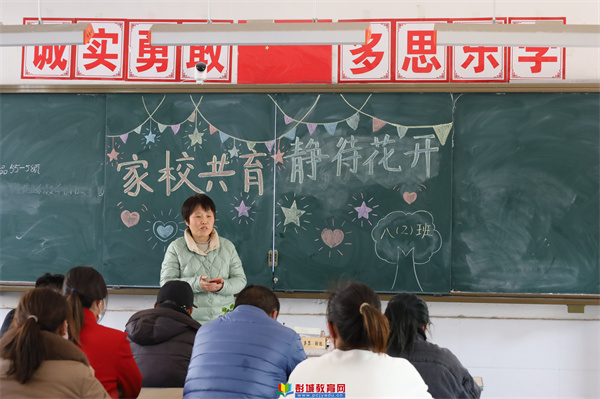 诚实勇敢 多思乐学
家校共育 静待花开
八(2)班
彭城教育网
www.pczyedu.cn